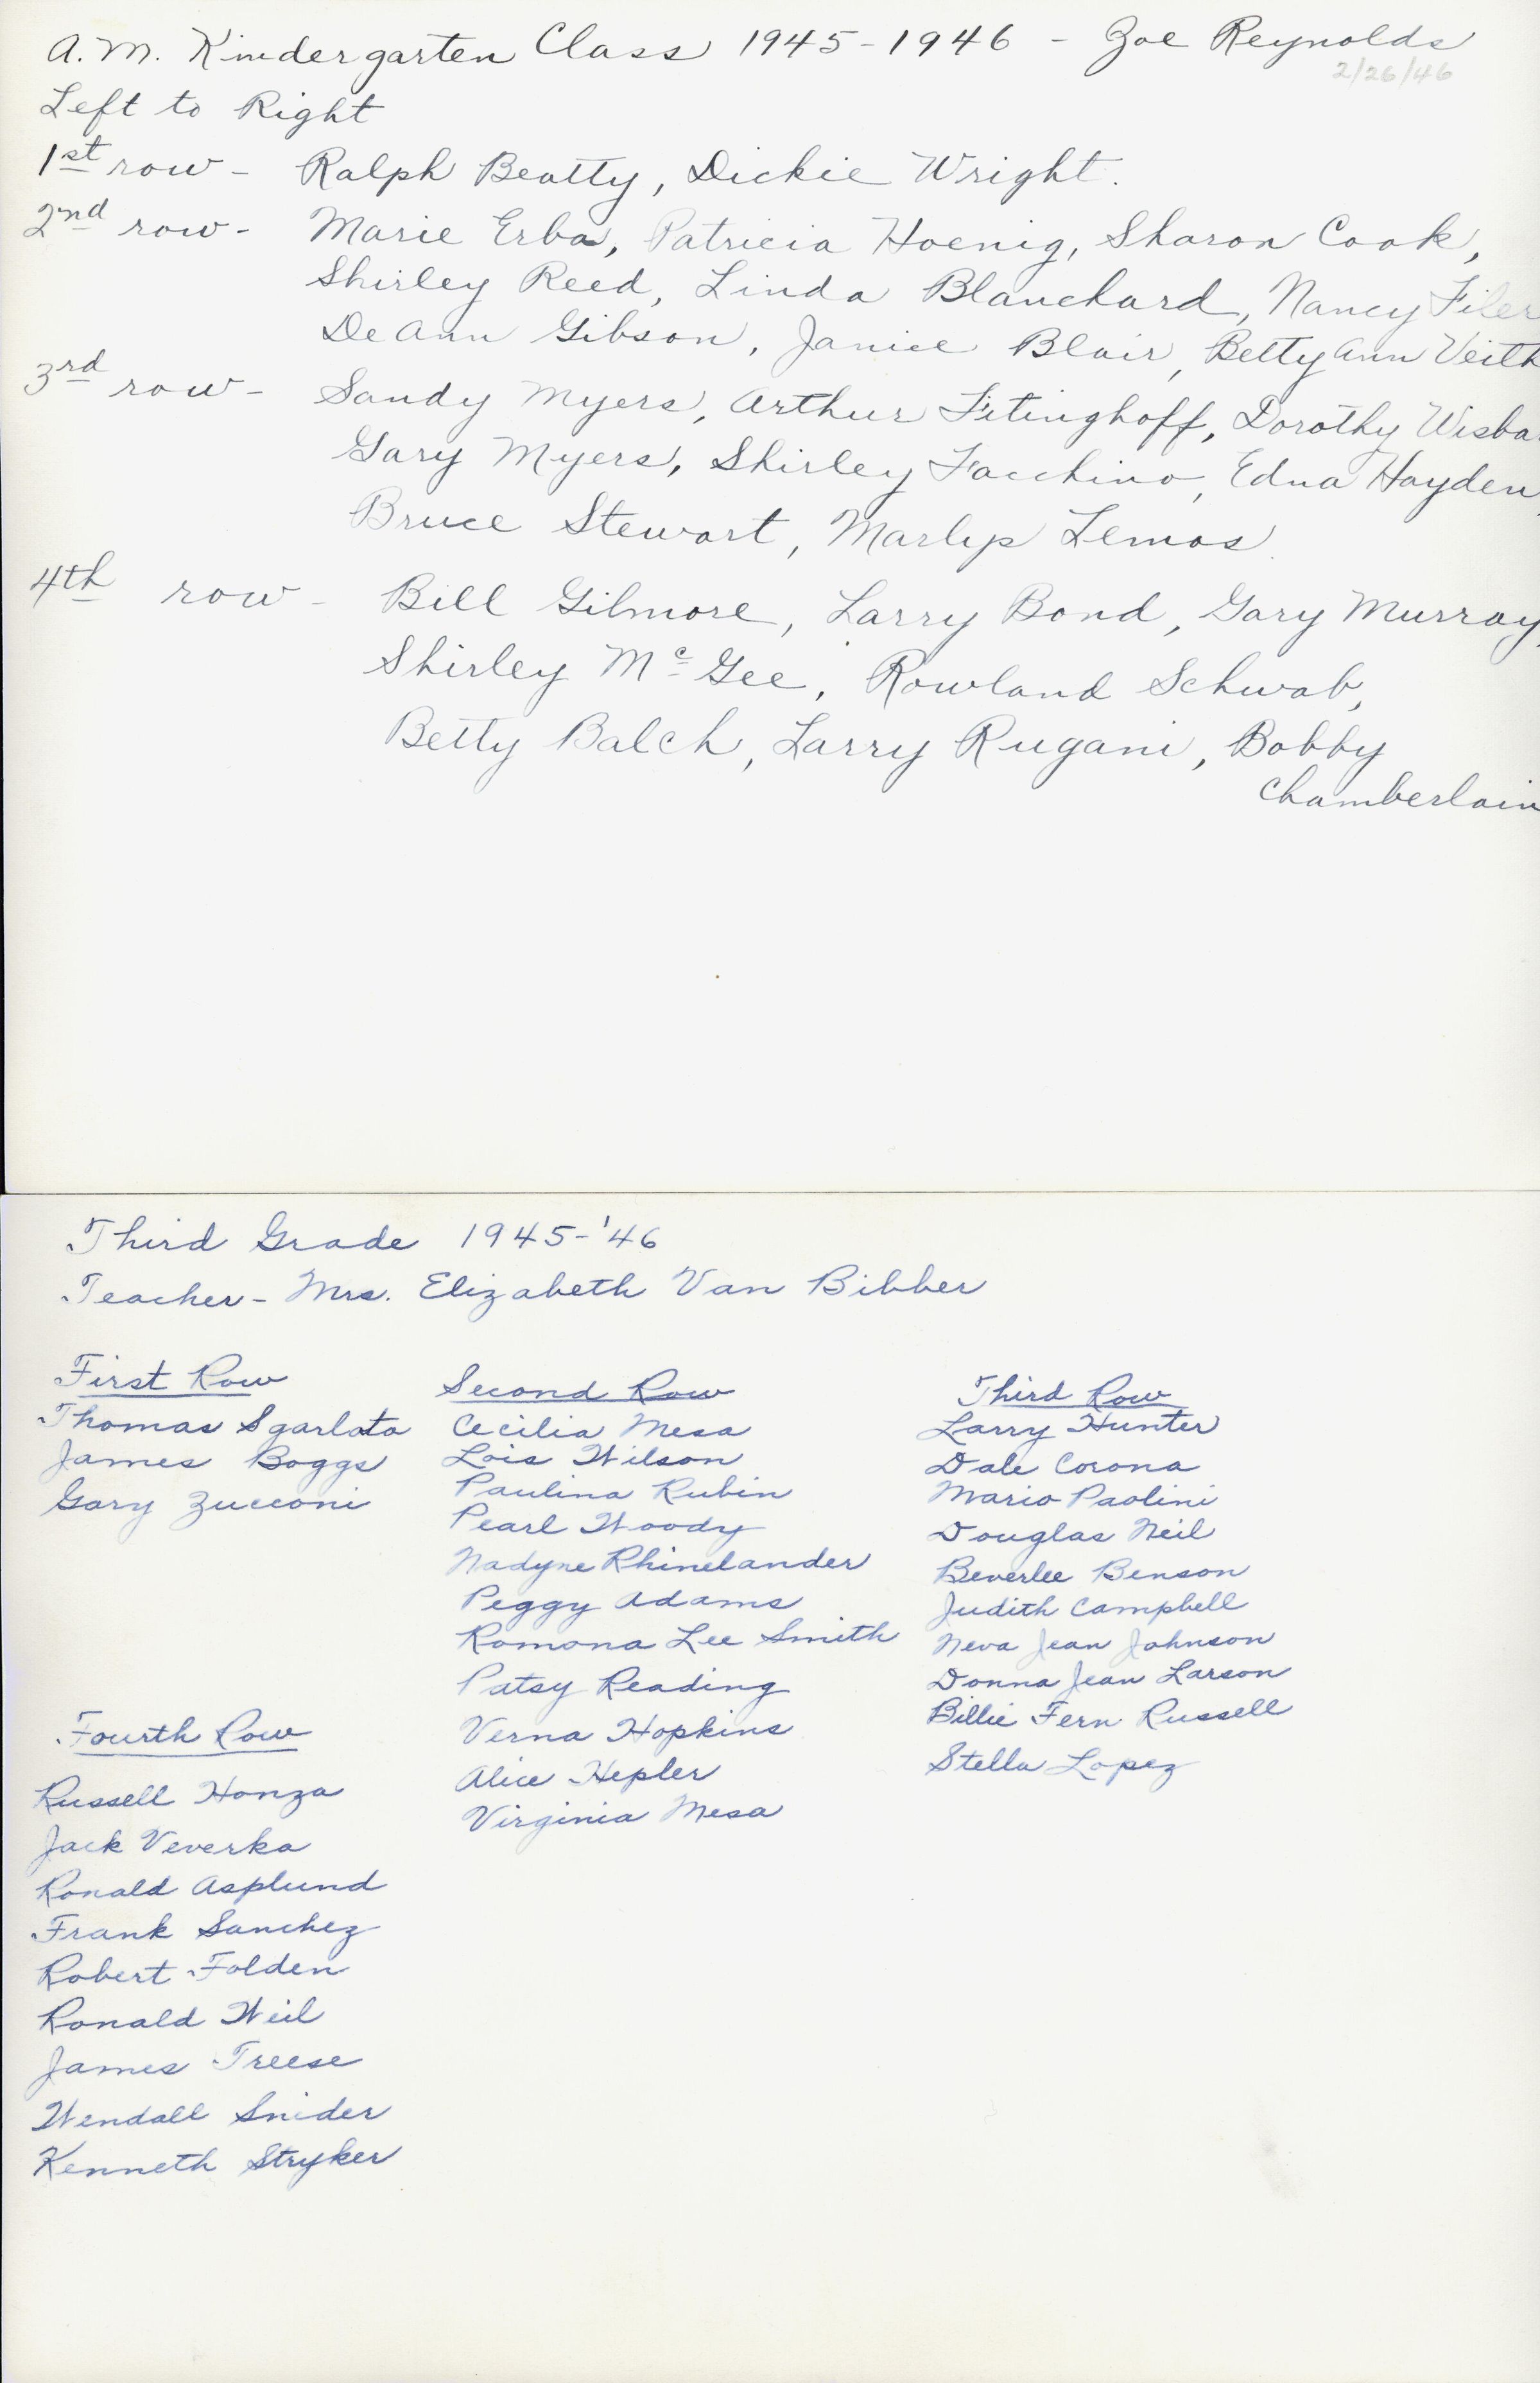 A.M. Kindergarten Class 1945-1946 - Zoe Reynolds
2/26/46
Left to Right
1st row - Ralph Beatty, Dickie Wright.
2nd row - Marie Erba, Patricia Hoenig, Sharon Cook,
Shirley Reed, Linda Blanchard, Nancy Filer
DeAnn Gibson, Janice Blair, Betty Ann Veith
3rd row - Sandy Myers, Arthur Fitinghoff, Dorothy Wisba
Gary Myers, Shirley Facchino, Edna Hayden,
Bruce Stewart, Marlys Lemos.
4th row - Bill Gilmore, Larry Bond, Gary Murray,
Shirley McGee, Rowland Schwab,
Betty Balch, Larry Rugani, Bobby
Chamberlain
Third Grade 1945-'46
Teacher - Mrs. Elizabeth Van Bibber
First Row
Thomas Sgarlato
James Boggs
Gary Zucconi
Second Row
Cecilia Mesa
Lois Wilson
Paulina Rubin
Pearl Woody
Nadyne Rhinelander
Peggy Adams
Romona Lee Smith
Patsy Reading
Verna Hopkins
Alice Hepler
Virginia Mesa
Third Row
Larry Hunter
Dale Corona
Mario Paolini
Douglas Neil
Beverlee Benson
Judith Campbell
Neva Jean Johnson
Donna Jean Larson
Billie Fern Russell
Stella Lopez
Fourth Row
Russell Honza
Jack Veverka
Ronald Asplund
Frank Sanchez
Robert Folden
Ronald Weil
James Treese
Wendall Snider
Kenneth Stryker